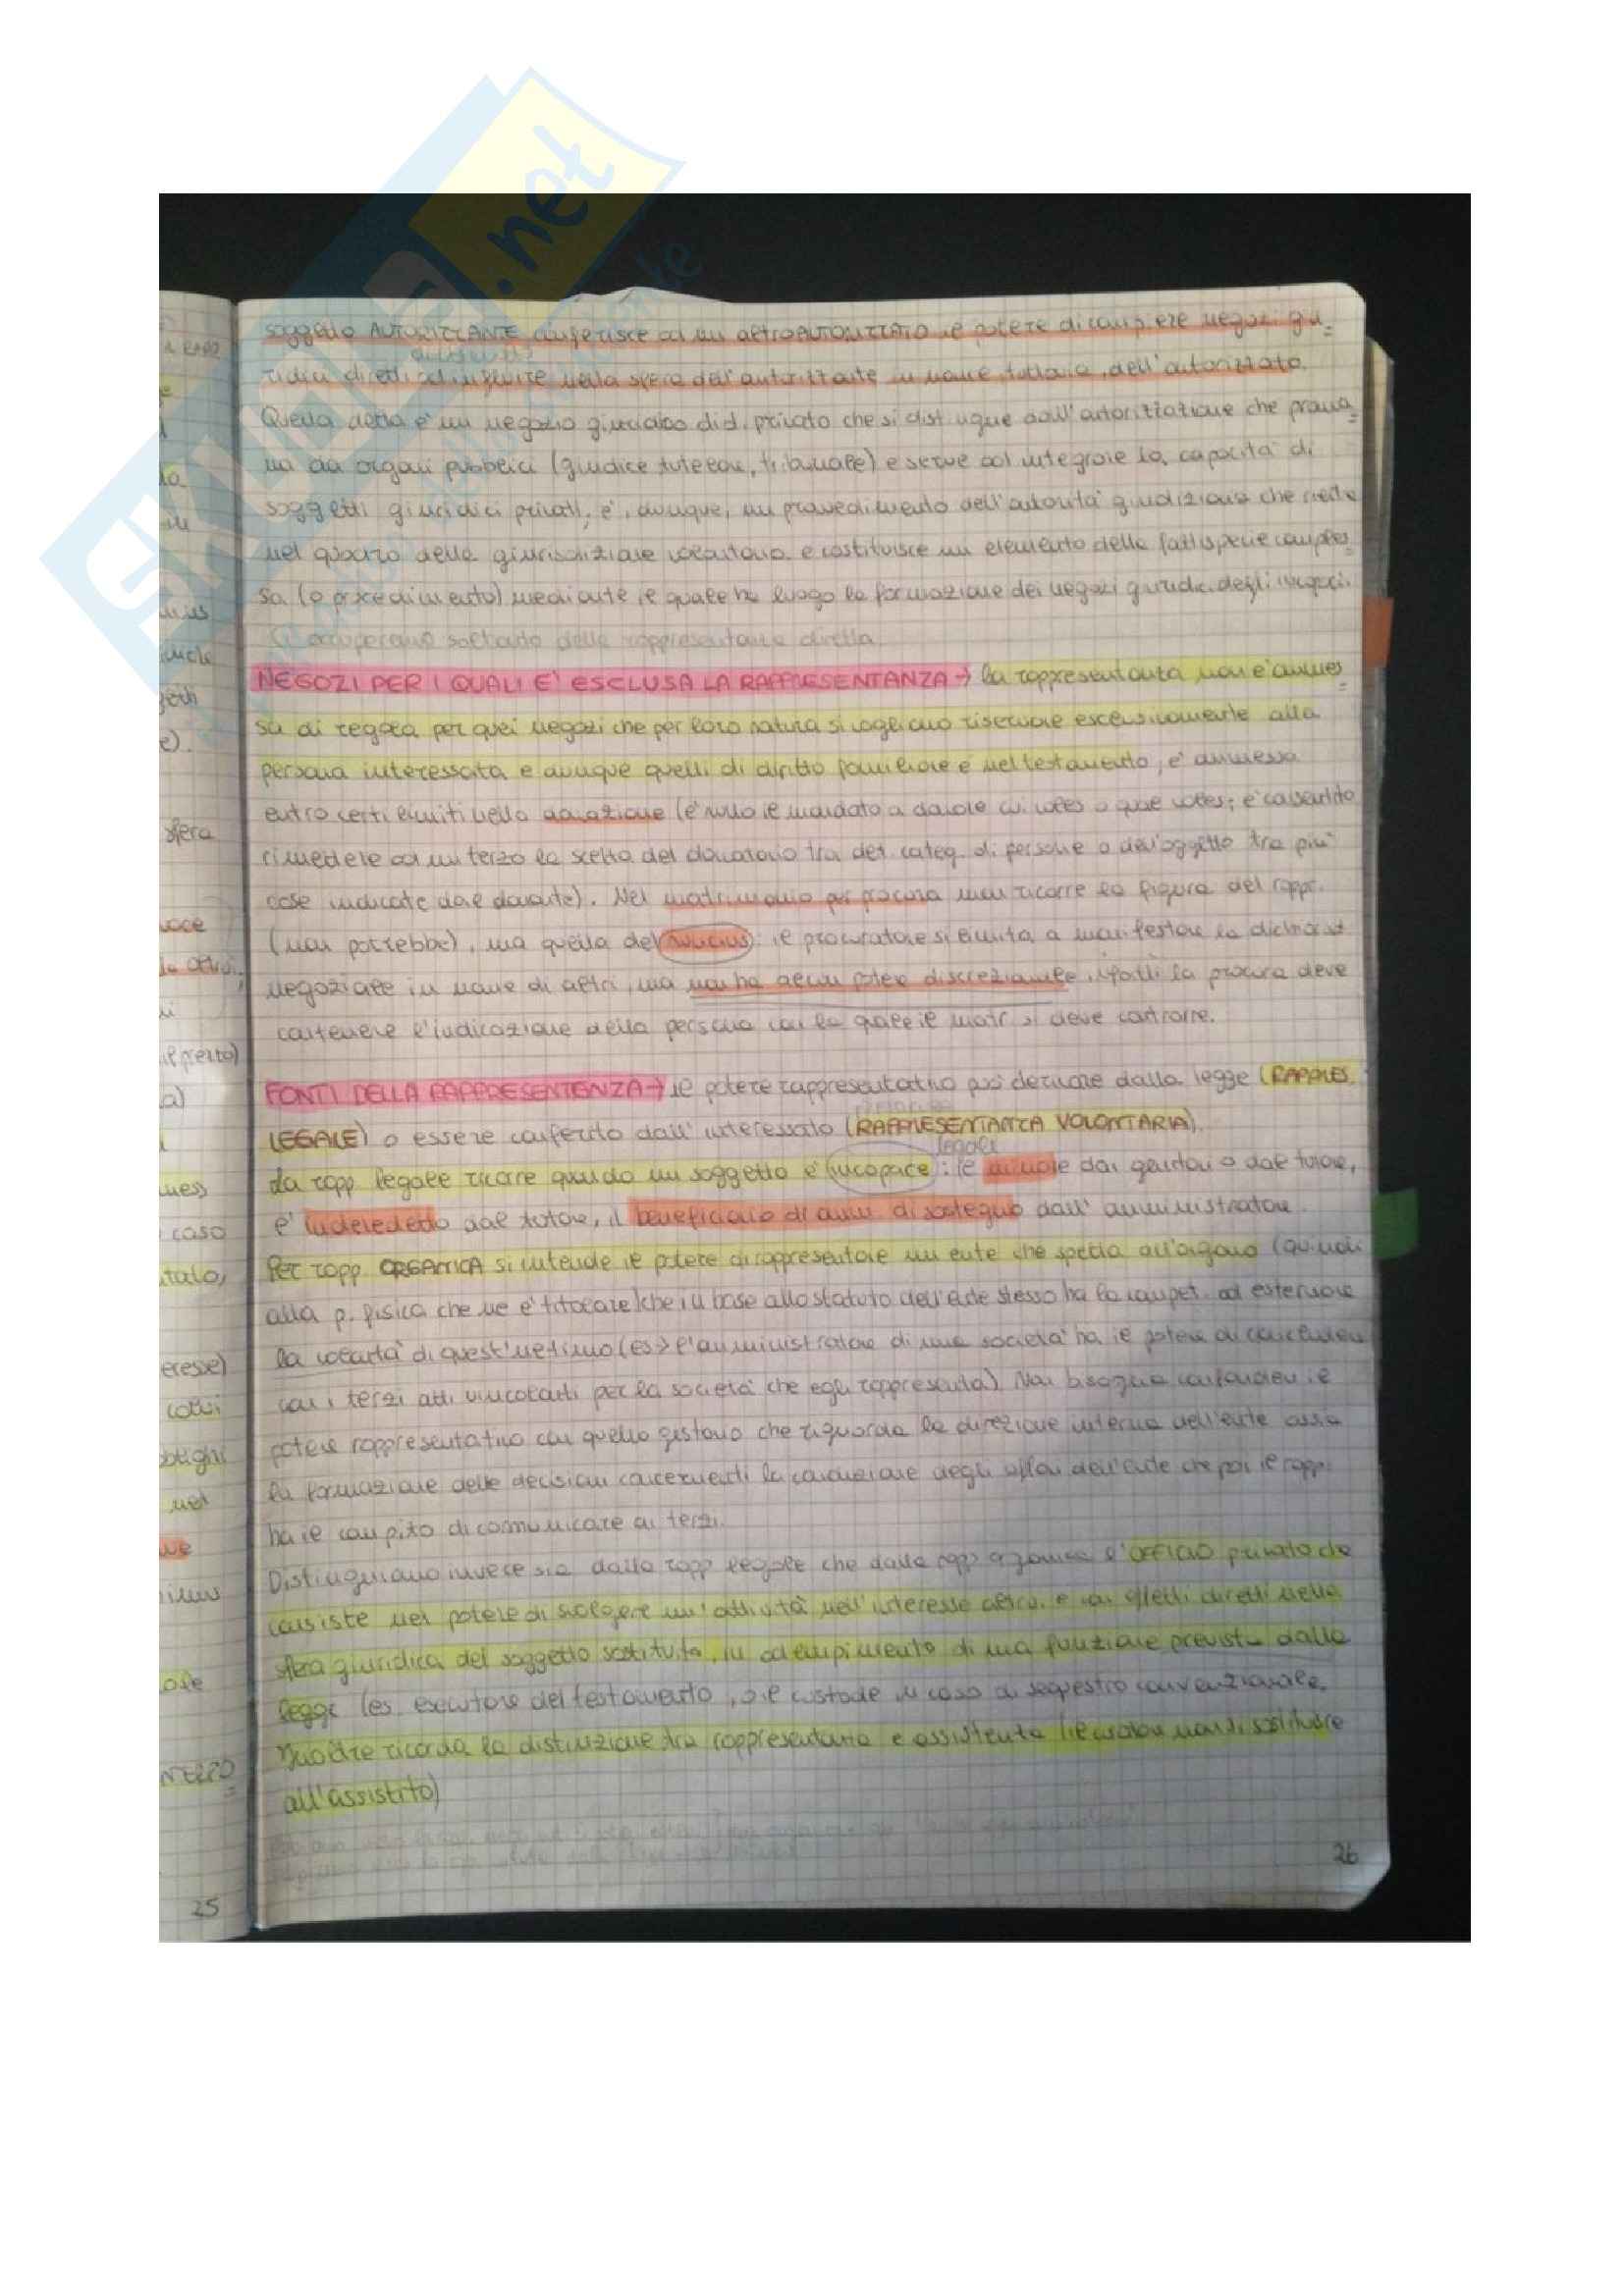 soggetto AUTORIZZANTE conferisce ad un altro AUTORIZZATO il potere di compiere negozi giu=
ridici diretti ad influire nella sfera dell'autorizzante in nome, tuttavia, dell'autorizzato.
Quella detta è un negozio giuridico di d. privato che si distingue dall'autorizzazione che proma=
na da organi pubblici (giudice tutelare, tribunale) e serve ad integrare la capacità di
soggetti giuridici privati, è, dunque, un provvedimento dell'autorità giudiziaria che rientra
nel quadro della giurisdizione volontaria e costituisce un elemento della fattispecie comples=
sa (o procedimento) mediante il quale ha luogo la formazione dei negozi giuridici degli incapaci.
Ci occuperemo soltanto della rappresentanza diretta
NEGOZI PER I QUALI E' ESCLUSA LA RAPPRESENTANZA → la rappresentanza non è ammes=
sa di regola per quei negozi che per loro natura si vogliono riservare esclusivamente alla
persona interessata e dunque quelli di diritto familiare e nel testamento, è ammessa
entro certi limiti nella donazione (è nullo il mandato a donare cui voles o quae voles; è consentito
rimettere ad un terzo la scelta del donatario tra det. categ. di persone o dell'oggetto tra più
cose indicate dal donante). Nel matrimonio per procura non ricorre la figura del rappr.
(non potrebbe), ma quella del nuncius: il procuratore si limita a manifestare la dichiaraz
negoziale in nome di altri, ma non ha alcun potere discrezionale, infatti la procura deve
contenere l'indicazione della persona con la quale il matr. si deve contrarre.
FONTI DELLA RAPPRESENTENZA → il potere rappresentativo può derivare dalla legge (RAPPRES.
LEGALE) o essere conferito dall'interessato (RAPPRESENTANZA VOLONTARIA).
legale
La rapp legale ricorre quando un soggetto è incapace: il minore dai genitori o dal tutore,
è interdetto dal tutore, il beneficiario di amm. di sostegno dall'amministratore.
Per rapp. ORGANICA si intende il potere di rappresentare un ente che spetta all'organo (quindi
alla p. fisica che ne è titolare) che in base allo statuto dell'ente stesso ha la compet. ad esternare
la volontà di quest'ultimo (es → l'amministratore di una società ha il potere di concludere
con i terzi atti vincolanti per la società che egli rappresenta). Non bisogna confondere il
potere rappresentativo con quello gestorio che riguarda la direzione interna dell'ente ossia
la formazione delle decisioni concernenti la conduzione degli affari dell'ente che poi il rapp.
ha il compito di comunicare ai terzi.
Distinguiamo invece sia dalla rapp legale che dalla rapp organica l'UFFICIO privato che
consiste nel potere di svolgere un'attività nell'interesse altrui e con effetti diretti nella
sfera giuridica del soggetto sostituito, in adempimento di una funzione prevista dalla
legge (es. esecutore del testamento, o il custode in caso di sequestro convenzionale.
Inoltre ricorda la distinzione tra rappresentanza e assistenza (il curatore non si sostituisce
all'assistito)
26
25